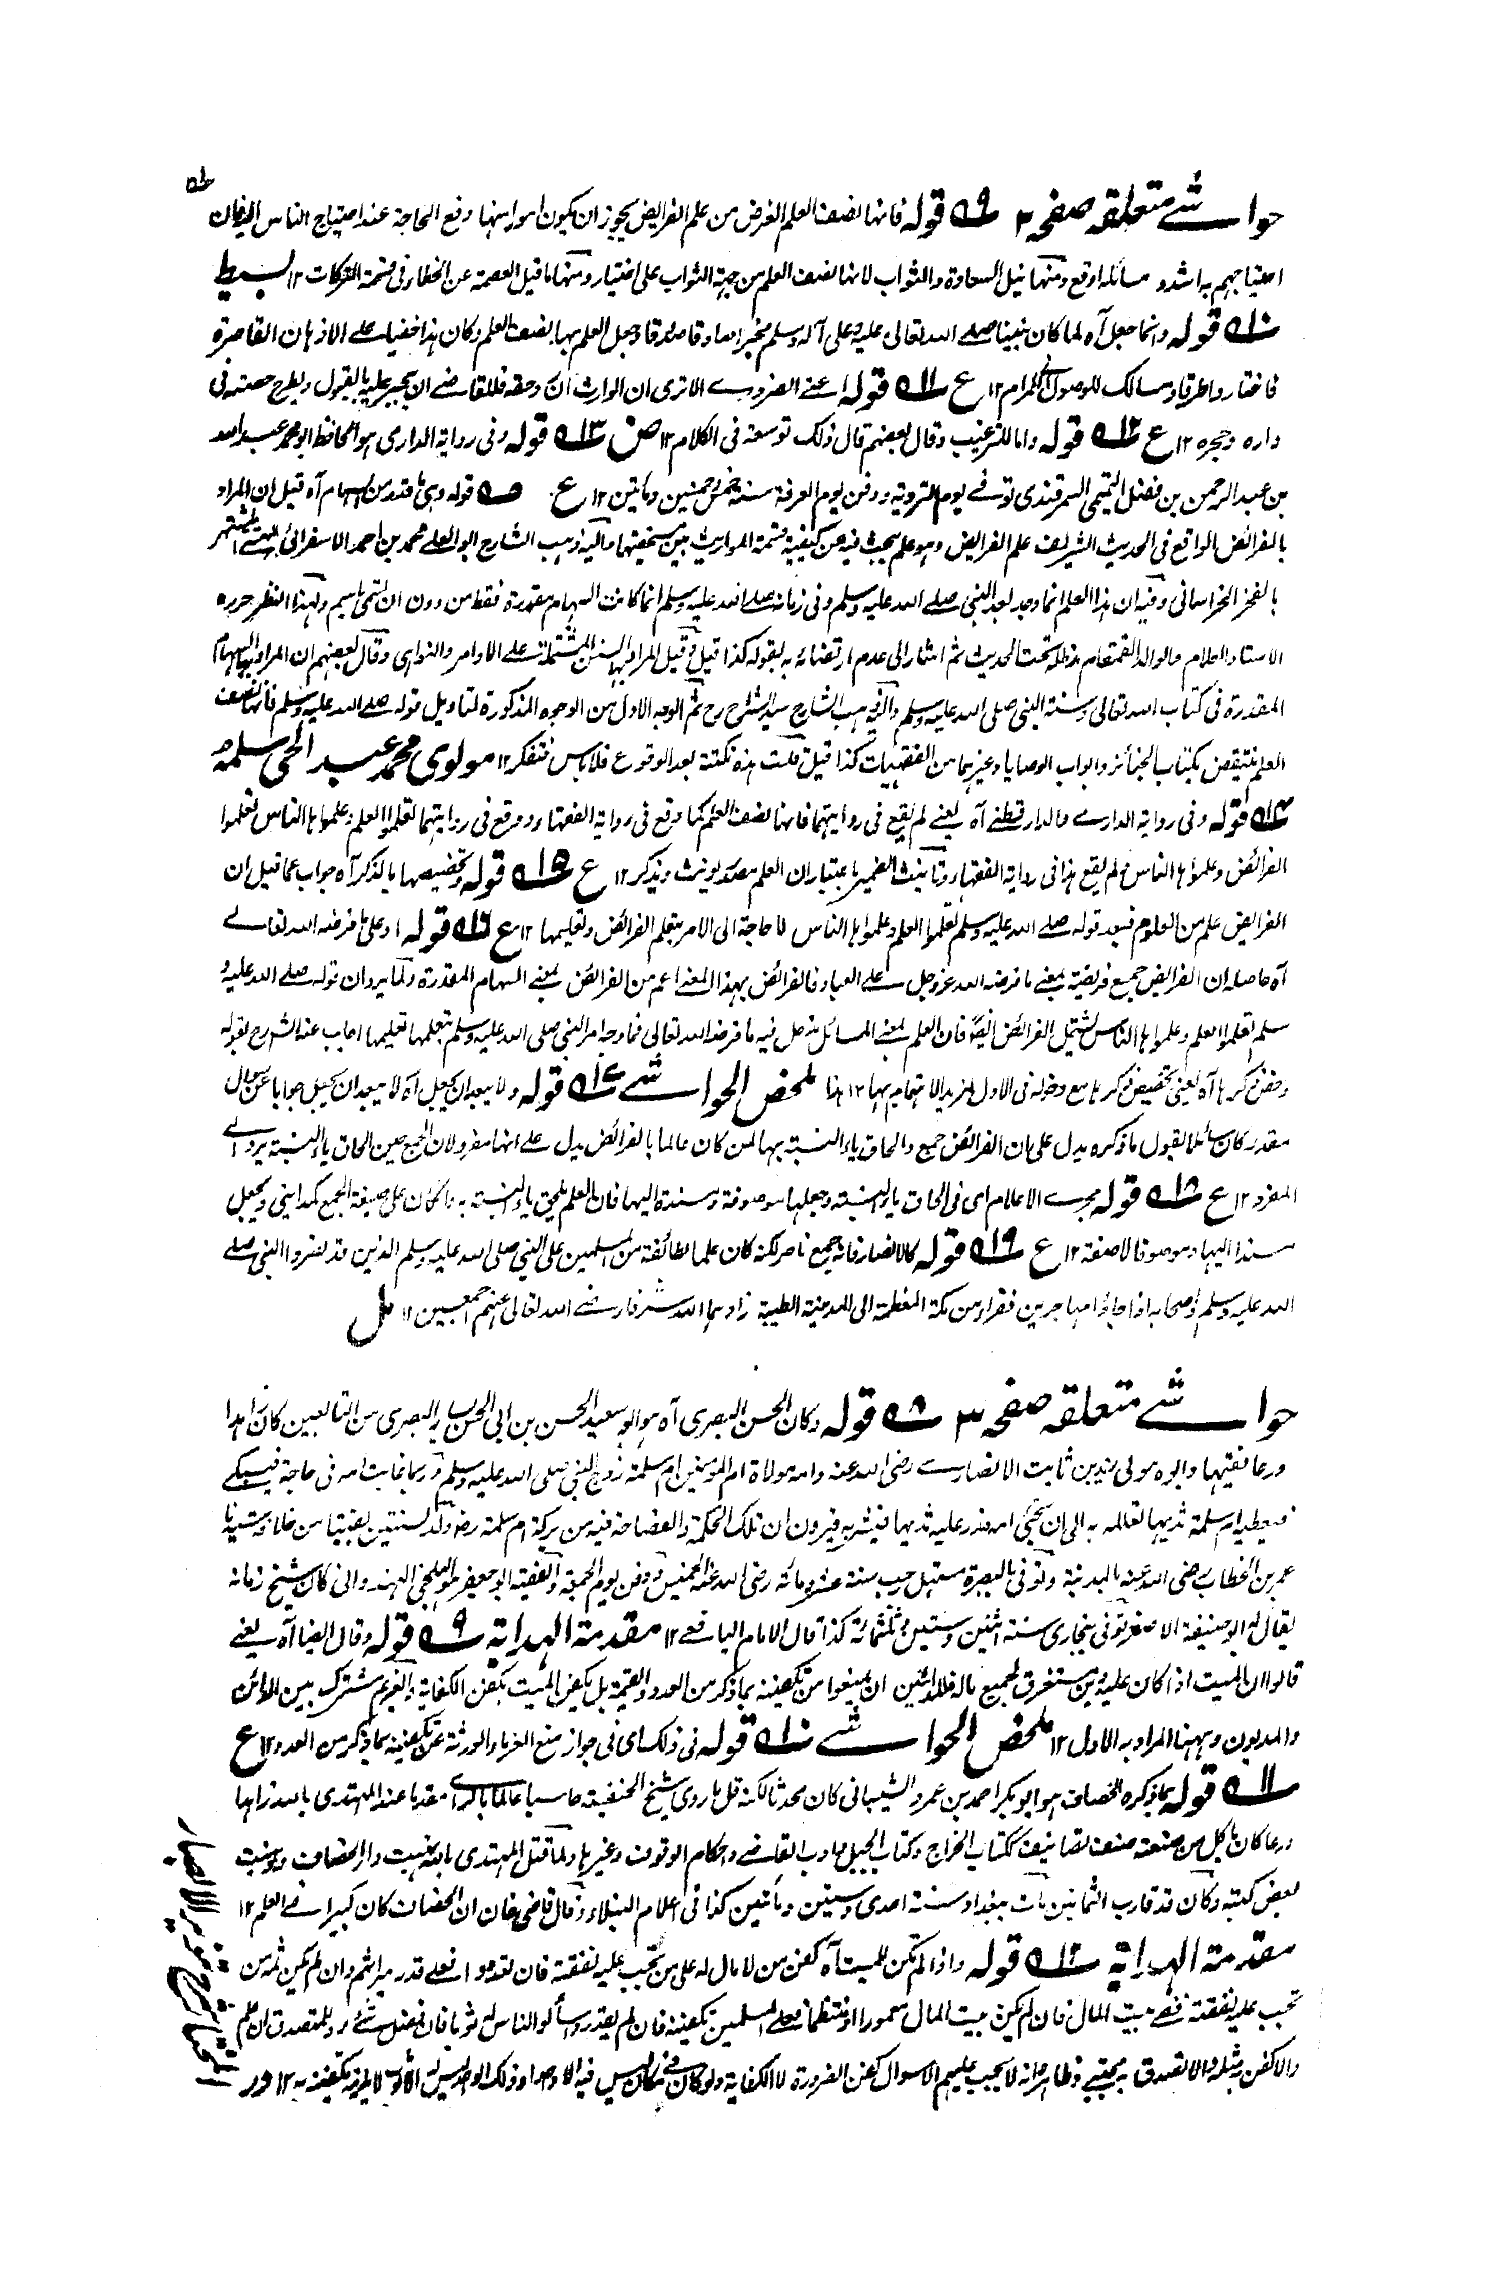 حواشے متعلقہ صفحہ ۲ ۹ قولہ فانہا نصف العلم الغرض من علم الفرایض یجوز ان یکون امور امنہا دفع الحاجة عند احتیاج الناس الیہ فان
احتیاجہم بہ اشد و مسائلہ اوقع ومنہا نیل السعادة والثواب لانہا نصف العلم من جہة الثواب علی اختیار ومنہا ما قیل العصمة عن الخطاء فی قسمة الترکات ۱۲ بسیط
۱۰ قولہ وانما جعل آہ لما کان نبینا صلے اللہ تعالی علیہ وعلی آلہ وسلم مخبرا صادقا مصدقا وجعل العلم بہا نصف العلم وکان ہذا خفیا علے الاذہان القاصرة
فاختاروا طرقا ومسالک للوصول الی المرام ۱۲ ع ۱۱ قولہ اعنے الضرورے الا تری ان الوارث ان رد حقہ فللقاضے ان یجبر علیہ بالقبول ویطرح حصتہ فی
دارہ وحجرہ ۱۲ ع ۱۲ قولہ واما للترغیب وقال بعضہم قال ذلک توسعة فی الکلام ۱۲ ص ۱۳ قولہ وفی روایة الدارمی ہو الحافظ ابو محمد عبد اللہ
بن عبد الرحمن بن فضل التمیمی السمرقندی توفے یوم الترویة ودفن یوم العرفة سنة خمس وخمسین ومائتین ۱۲ ع قولہ وہی ما قدر من السہام آہ قیل ان المراد
بالفرائض الواقع فی الحدیث الشریف علم الفرایض وہو علم یبحث فیہ عن کیفیة قسمة المواریث بین مستحقیہا والیہ ذہب الشارح ابو العلے محمد بن احمد الاسفرائی البہشتے المشتہر
بالفخر الخراسانی وفیہ ان ہذا العلم انما وجد بعد النبی صلے اللہ علیہ وسلم وفی زمانہ صلے اللہ علیہ وسلم انما کانت السہام مقدرة فقط من دون ان تسمی باسم ولہذا النظر حررہ
الاستاد العلام والوالد القمقام مد ظلہ تحت الحدیث ثم اشار الی عدم ارتضائہ بہ بقولہ کذا قیل وقیل المراد بہا السنن المشتملة علے الاوامر والنواہی وقال بعضہم ان المراد بہا السہام
المقدرة فی کتاب اللہ تعالی وسنة النبی صلی اللہ علیہ وسلم والیہ ذہب الشارح سید الشراح رح ثم الوجہ الاول من الوجوہ المذکورة لتاویل قولہ صلے اللہ علیہ وسلم فانہا نصف
العلم ینتقض بکتاب الجنائز وابواب الوصایا وغیرہما من الفقہیات کذا قیل قلت ہذہ نکتة بعد الوقوع فلا باس فتفکر ۱۲ مولوی محمد عبد الحی سلمہ
۱۴ قولہ وفی روایة الدارے والدار قطنے آہ یعنے لم یقع فی روایتہما فانہا نصف العلم کما وقع فی روایة الفقہاء ووقع فی روایتہما تعلموا العلم وعلموہا الناس تعلموا
الفرائض وعلموہا الناس ولم یقع ہذا فی روایة الفقہاء وتانیث الضمیر باعتبار ان العلم مصدر یونث ویذکر ۱۲ ع ۱۵ قولہ وتخصیصہا بالذکر آہ جواب عما قیل ان
الفرایض علم من العلوم فبعد قولہ صلے اللہ علیہ وسلم تعلموا العلم وعلموہا الناس لا حاجة الی الامر بتعلم الفرائض وتعلیمہا ۱۲ ع ۱۶ قولہ او علی ما فرضہ اللہ تعالے
آہ حاصلہ ان الفرایض جمیع فریضة بمعنے ما فرضہ اللہ عز وجل علے العباد فالفرائض بہذا المعنے اعم من الفرائض بمعنے السہام المقدرة ولما یرد ان قولہ صلے اللہ علیہ و
سلم تعلموا العلم وعلموہا الناس یشتمل الفرائض ایضا فان العلم بمعنے المسائل یدخل فیہ ما فرضہ اللہ تعالی فما وجہ امر النبی صلی اللہ علیہ وسلم بتعلمہا وتعلیمہا اجاب عنہ الشارح بقولہ
وخص ذکرہا آہ یعنی تخصیص ذکرہا مع دخولہ فی الاول لمزید الاہتمام بہا ۱۲ ہذا ملخص الحواشے ۱۷ قولہ ولا یبعد ان یجعل آہ لا یبعد ان یجعل جوابا عن سوال
مقدر کان سائلا یقول ما ذکرہ یدل علی ان الفرائض جمع والحاق یاء النسبة بہا لمن کان عالما بالفرائض یدل علے انہا مفرد لان الجمع حین الحاق یاء النسبة یرد الے
المفرد ۱۲ ع ۱۸ قولہ مجرے الاعلام ای فی الحاق یاء النسبة وجعلہا موصوفة ومسندة الیہا فان العلم یلحق یاء النسبة بہ وان کان علی صیغة الجمع کمداینی ویجعل
مسندا الیہا وموصوفا لاصفة ۱۲ ع ۱۹ قولہ کالانصار فانہ جمیع ناصر لکنہ کان علما لطائفة من المسلمین علی النبی صلی اللہ علیہ وسلم الذین قد نصروا النبی صلے
اللہ علیہ وسلم واصحابہ اذا جاؤا مہاجرین فقراء من مکة المعظمة الی المدینة الطیبة زادہما اللہ شرفا رضے اللہ تعالی عنہم اجمعین ۱۲ مل
حواشے متعلقہ صفحہ ۳ ۸ قولہ وکان الحسن البصری آہ ہو ابو سعید الحسن بن ابی الحسن یسار البصری من التابعین کان زاہدا
ورعا فقیہا وابوہ مولی زید بن ثابت الانصارے رضی اللہ عنہ وامہ مولاة ام المومنین ام سلمة زوج النبی صلی اللہ علیہ وسلم وربما غابت امہ فی حاجة فیبکے
فتعطیہ ام سلمة ثدیہا تعللہ بہ الی ان تجئی امہ فدر علیہ ثدیہا فیشربہ فیرون ان تلک الحکمة والفصاحة فیہ من برکة ام سلمة رض ولد لسنتین بقیتا من خلافة سیدنا
عمر بن الخطاب رضی اللہ عنہ بالمدینة وتوفی بالبصرة مستہل رجب سنة عشر ومائة رضی اللہ عنہ الخمیس ودفن یوم الجمعة والفقیہ ابو جعفر ہو البلخی الہندوانی کان شیخ زمانہ
یقال لہ ابو حنیفة الاصغر توفی ببخاری سنة اثنین وستین وثلثمائة کذا قال الامام الیافعے ۱۲ مقدمة الہدایة ۹ قولہ وقال ایضا آہ یعنے
قالوا ان المیت اذا کان علیہ دین مستغرق لجمیع مالہ فللدائنین ان یمنعوا من تکفینہ بما ذکر من العدد والقیمة بل یکفن المیت بکفن الکفایة والغریم مشترک بین الدائن
والمدیون وہہنا المراد بہ الاول ۱۲ ملخص الحواشے ۱۰ قولہ فی ذلک ای فی جواز منع الغرماء والورثة عن تکفینہ بما ذکر من العدد ۱۲ ع
۱۱ قولہ بما ذکرہ الخصاف ہو ابو بکر احمد بن عمرو الشیبانی کان محدثا لکنہ قل ما روی شیخ الحنفیة حاسبا عالما بالراے مقدما عند المہتدی باللہ زاہدا
ورعا کان یاکل من صنعتہ صنف تصانیف ککتاب الخراج وکتاب الحیل وادب القاضے واحکام الوقوف وغیرہا ولما قتل المہتدی باللہ نہبت دار الخصاف وذہبت
بعض کتبہ وکان قد قارب الثمانین مات ببغداد سنة احدی وستین ومأتین کذا فی اعلام النبلاء وقال قاضی خان ان الخصاف کان کبیرا فے العلم ۱۲
مقدمة الہدایة ۱۲ قولہ واذا لم تکن للمیت آہ کفن من لا مال لہ علی من تجب علیہ نفقتہ فان تعددوا فعلے قدر میراثہم وان لم یکن ثمہ من
تجب علیہ نفقتہ ففے بیت المال فان لم یکن بیت المال معمورا او منتظما فعلے المسلمین تکفینہ فان لم یقدروا سألوا الناس لہ ثوبا فان فضل شئے رد للمتصدق ان علم
والا کفن بہ مثلہ والا تصدق بہ مجتبے وظاہرہ انہ لا یجب علیہم الا سوال کفن الضرورة لا الکفایة ولو کان فی مکان لیس فیہ الا واحد وذلک الواحد لیس لہ الا ثوب لا یلزمہ تکفینہ بہ ۱۲ در
المختار شرح تنویر الابصار